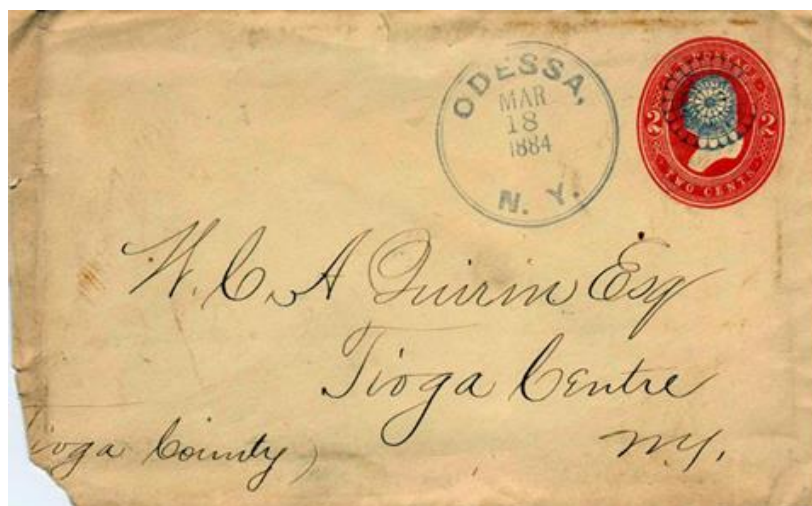 ODESSA,
MAR
18
1884
N. Y.
POSTAGE
2 2
TWO CENTS
W. C. A Quirin Esq
Tioga Centre
N.Y.
Tioga County)